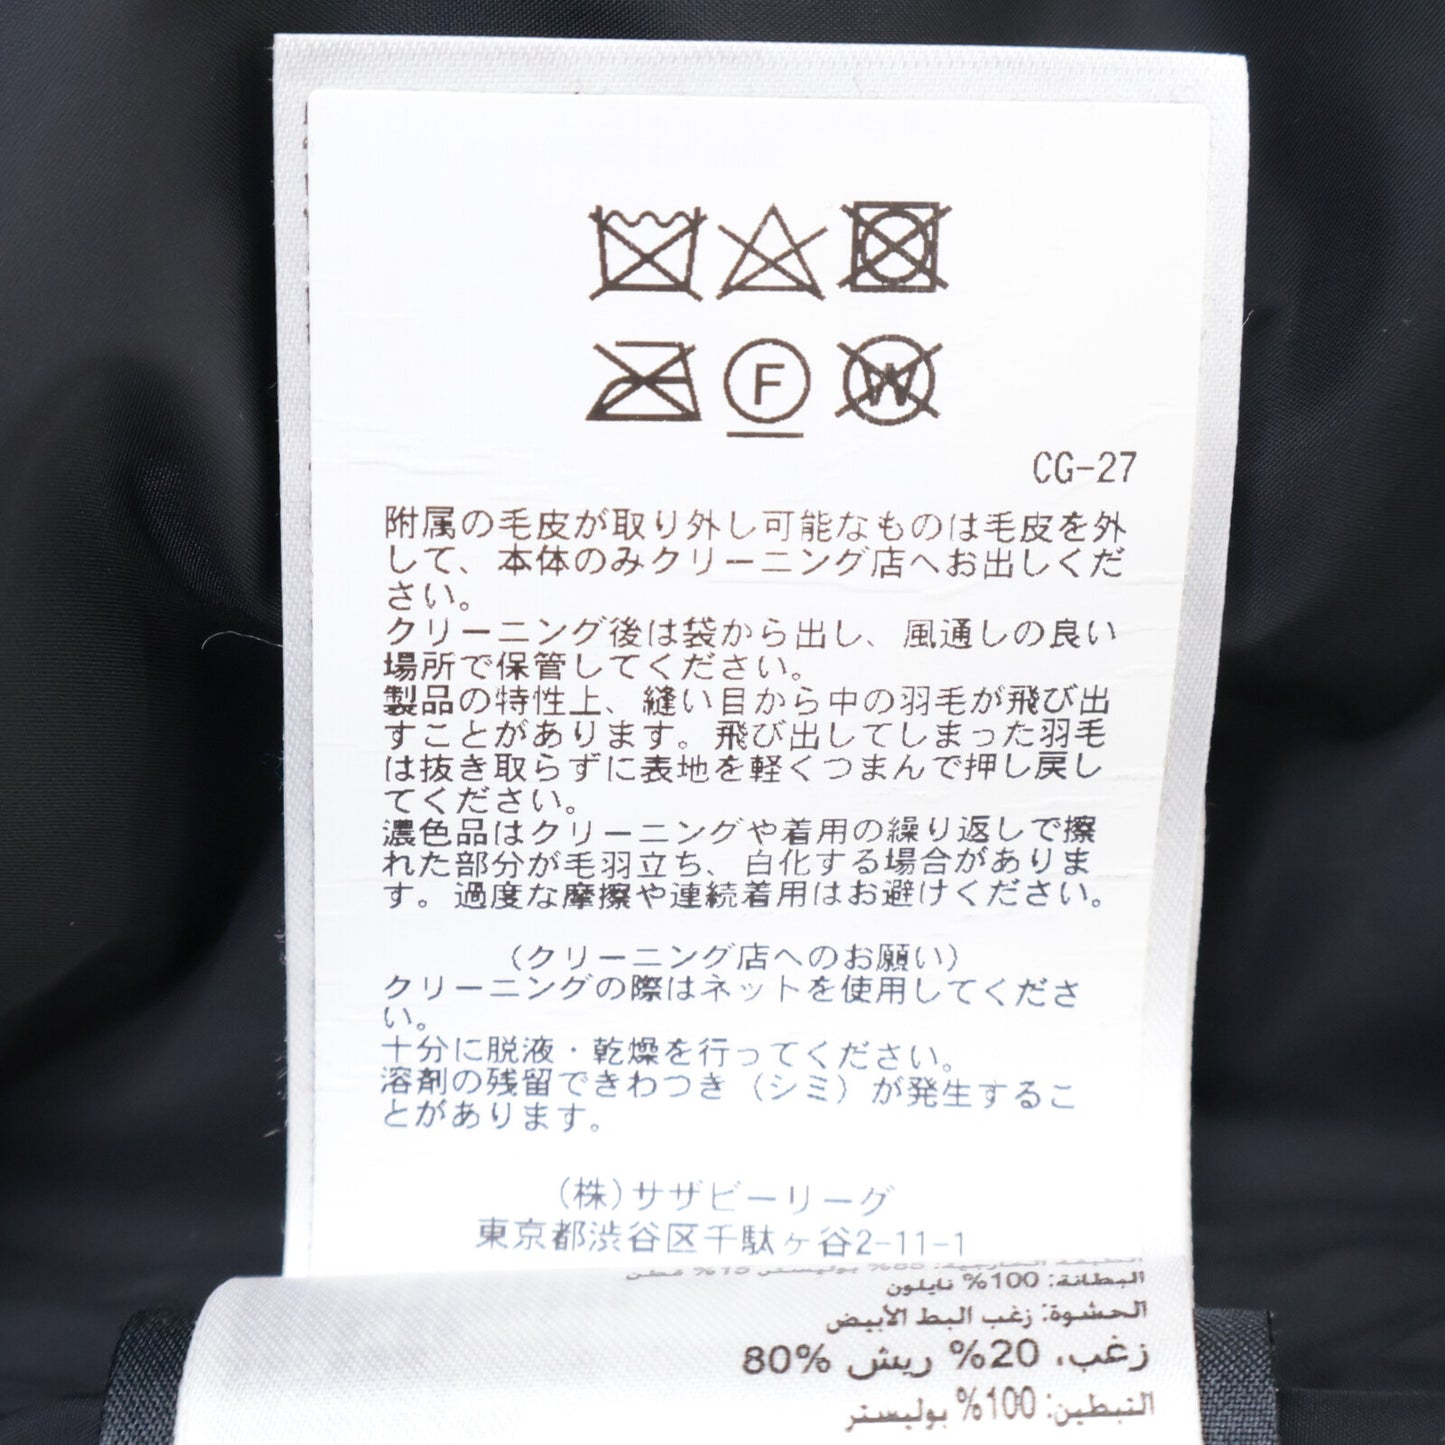 F
W
CG-27
附属の毛皮が取り外し可能なものは毛皮を外
して、本体のみクリーニング店へお出しくだ
さい。
クリーニング後は袋から出し、風通しの良い
場所で保管してください。
製品の特性上、縫い目から中の羽毛が飛び出
すことがあります。飛び出してしまった羽毛
は抜き取らずに表地を軽くつまんで押し戻し
てください。
濃色品はクリーニングや着用の繰り返しで擦
れた部分が毛羽立ち、白化する場合がありま
す。過度な摩擦や連続着用はお避けください。
(クリーニング店へのお願い)
クリーニングの際はネットを使用してくださ
い。
十分に脱液・乾燥を行ってください。
溶剤の残留できわつき(シミ)が発生するこ
とがあります。
(株)サザビーリーグ
東京都渋谷区千駄ヶ谷2-11-1
البطانة: 100% نايلون
الحشوة: زغب البط الأبيض
80% زغب، 20% ريش
التبطين: 100% بوليستر